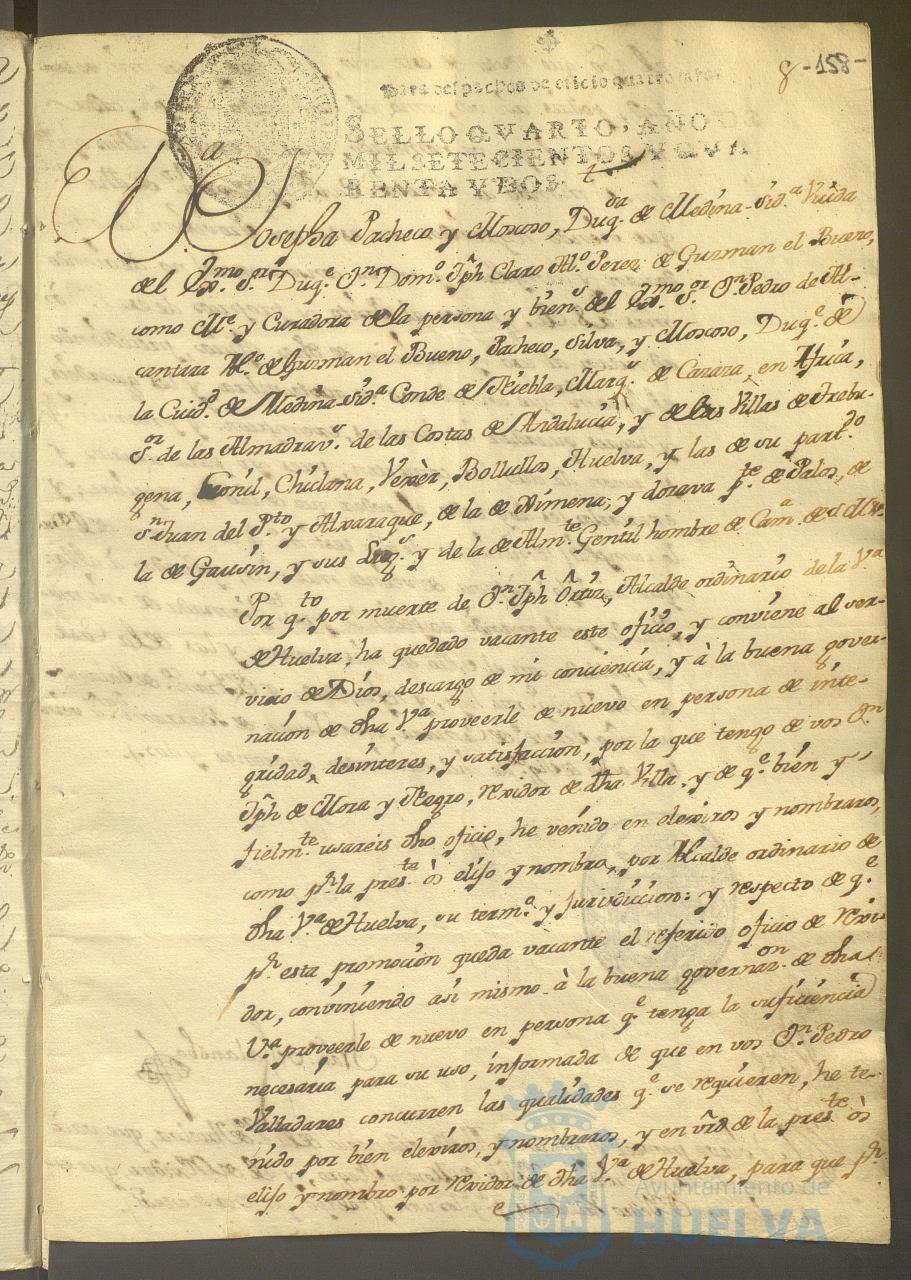 8 -158-
Para despachos de oficio quatro mrs.
SELLO QVARTO, AÑO
MIL SETECIENTOS Y QVA
RENTA Y DOS.
Da Josepha Pacheco y Moscoso, Duq.sa de Medina-Sid.a Viuda
del Exmo. Sr. Duq.e Dn. Dom.o Jph Claro Al.o Perez de Guzman el Bueno,
como M.e y Curadora de la persona y bien.s del Exmo. Sor. Dn. Pedro de Al-
cantara Al.o de Guzman el Bueno, Pacheco, Silva, y Moscoso, Duq.e de
la Ciud.d de Medina-Sid.a Conde de Niebla, Marq.s de Cazaza, en Africa,
Sor. de las Almadrav.s de las Costas de Andalucia, y de las Villas de Trebu-
gena, Conil, Chiclana, Vexèr, Bollullos, Huelva, y las de su part.do
Sn. Juan del P.to y Alxaraque, de la de Ximena, y dozava p.te de Palos, de
la de Gausin, y sus Lug.s y de la de Alm.te Gentil hombre de Cam.a de S.M. &.
Por q.to por muerte de Dn. Jph Ortiz, Alcalde ordinario de la V.a
de Huelva, ha quedado vacante este oficio, y conviene al ser-
vicio de Dios, descargo de mi conciencia, y à la buena gover-
nación de dha V.a proveerle de nuevo en persona de inte-
gridad, desinteres, y satisfacción, por la que tengo de vos Dn.
Jph de Mora y Negro, rexidor de dha Villa, y de q.e bien y
fielm.te usareis dho oficio, he venido en elexiros y nombraros,
como pr. la pres.te òs elijo y nombro, por Alcalde ordinario de
dha V.a de Huelva, su term.o y Jurisdiccion: y respecto de q.e
pr. esta promoción queda vacante el referido oficio de rexi-
dor, conviniendo asi mismo à la buena governaz.on de dha
V.a proveerle de nuevo en persona q.e tenga la suficiencia
necesaria para su uso, informada de que en vos Dn. Pedro
Valladares concurren las qualidades q.e se requieren, he te-
nido por bien elexiros, y nombraros, y en vrd de la pres.te òs
elijo y nombro por rexidor de dha V.a de Huelva, para que pr.
Ayuntamiento de
HUELVA